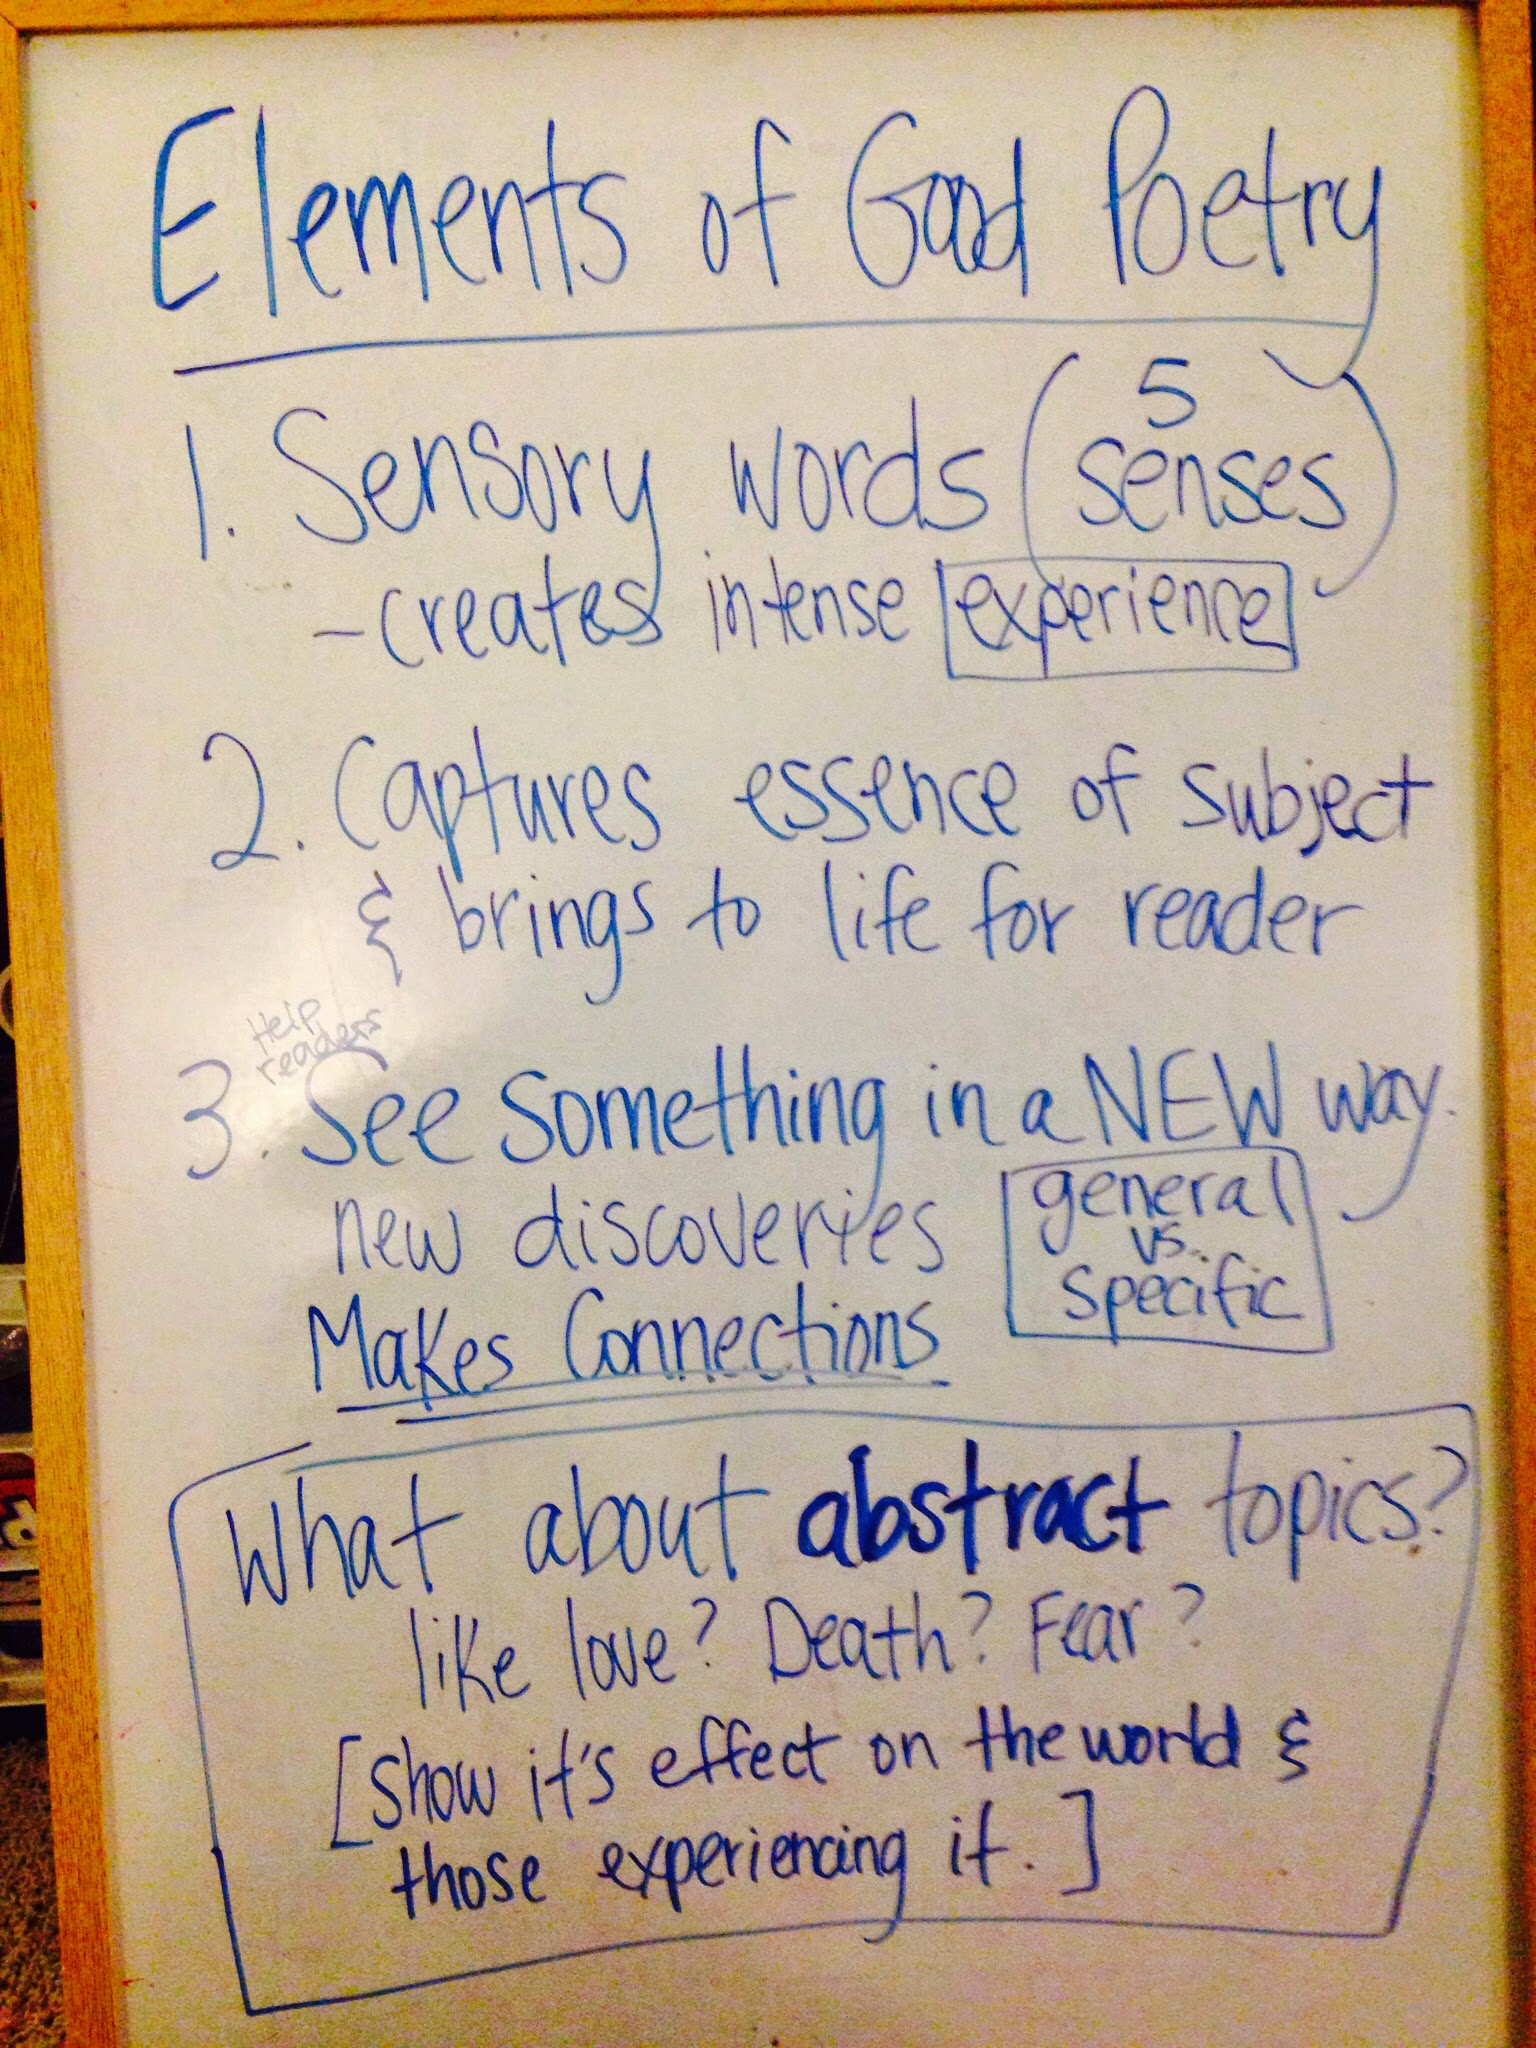 Elements of Good Poetry
1. Sensory words (5 senses)
- creates intense experience
2. Captures essence of subject
& brings to life for reader
Help
readers
3. See something in a NEW way.
new discoveries
Makes Connections
general
vs.
specific
What about abstract topics?
like love? Death? Fear?
[show it's effect on the world &
those experiencing it.]